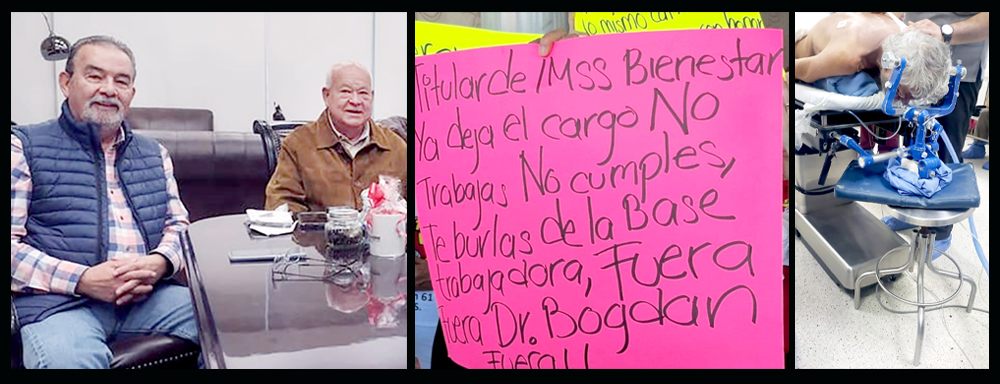 lo mismo con
Titular de IMSS Bienestar
Ya deja el cargo No
Trabajas No cumples,
Te burlas de la Base
trabajadora, Fuera
Fuera Dr. Bogdan
Fuera!!
61
S.